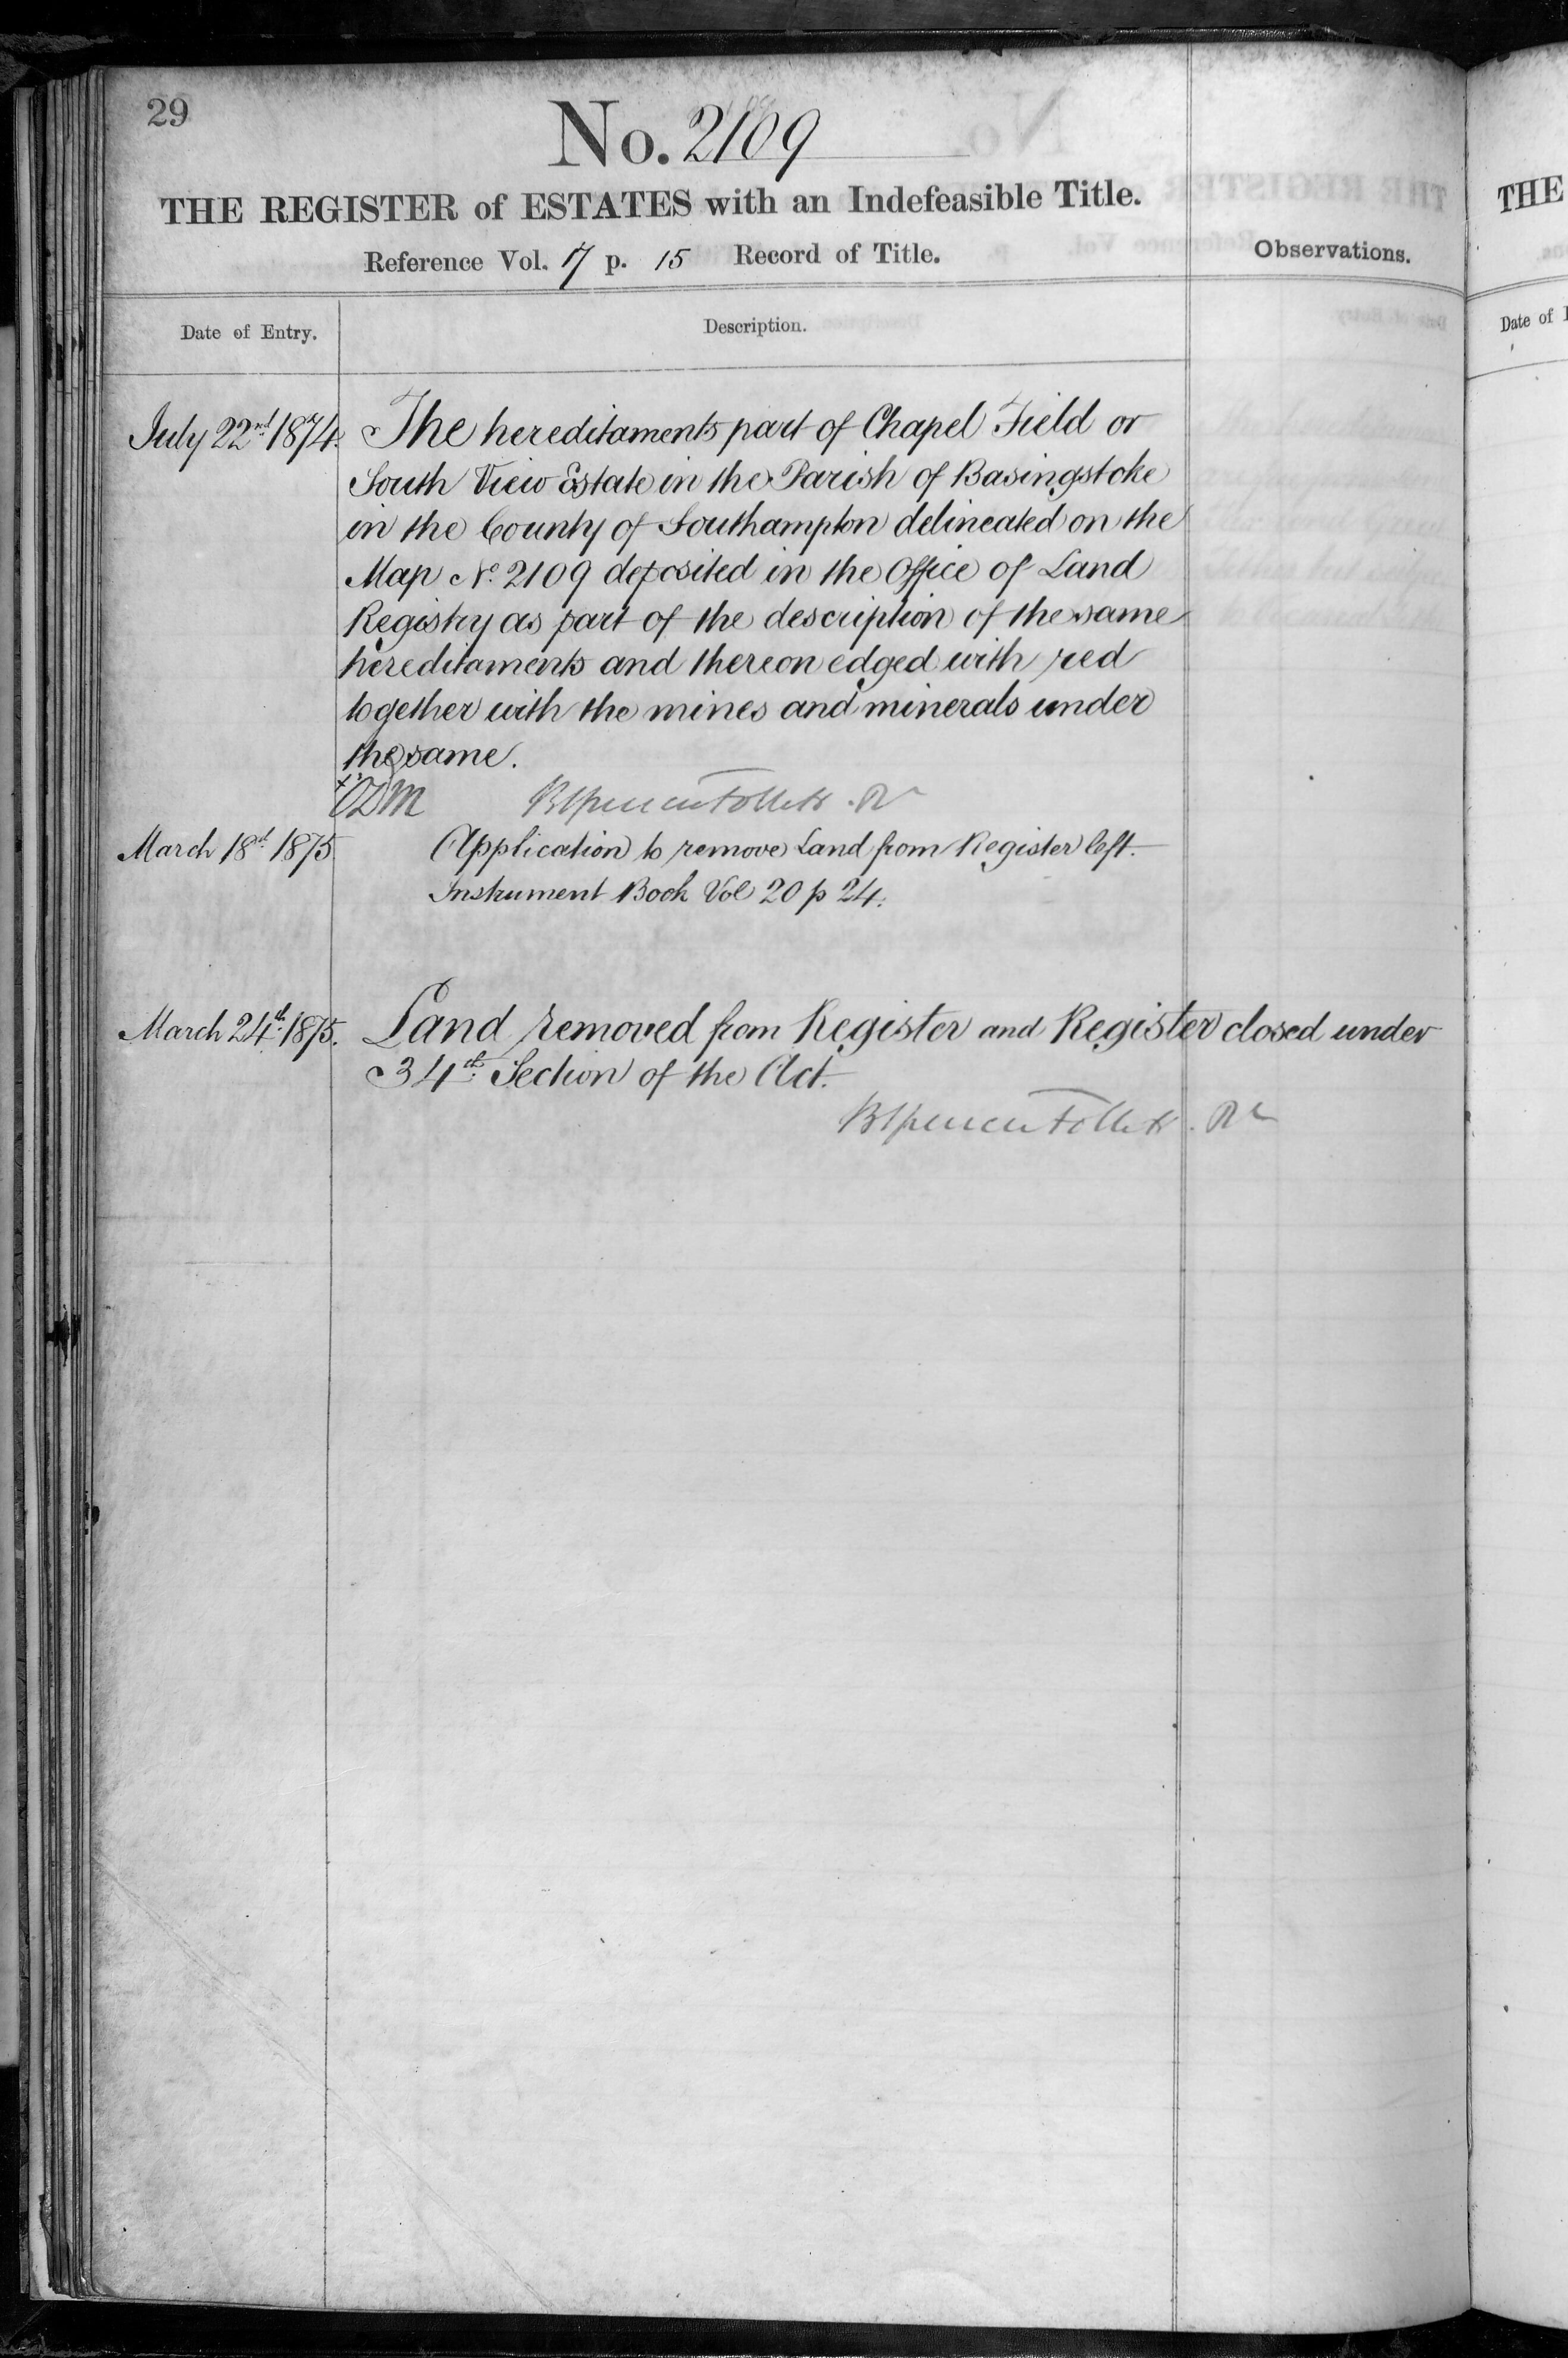 29
No. 2109
THE REGISTER of ESTATES with an Indefeasible Title.
Reference Vol. 17 p. 15 Record of Title.
Observations.
Date of Entry.
Description.
July 22nd 1874. The hereditaments part of Chapel Field or
South View Estate in the Parish of Basingstoke
in the County of Southampton delineated on the
Map No. 2109 deposited in the Office of Land
Registry as part of the description of the same
hereditaments and thereon edged with red
together with the mines and minerals under
the same.
BSpencer Follett. Rr
March 18th 1875 Application to remove Land from Register left.
Instrument Book Vol 20 p 24.
March 24th 1875. Land removed from Register and Register closed under
34th Section of the Act.
BSpencer Follett. Rr
THE
Date of